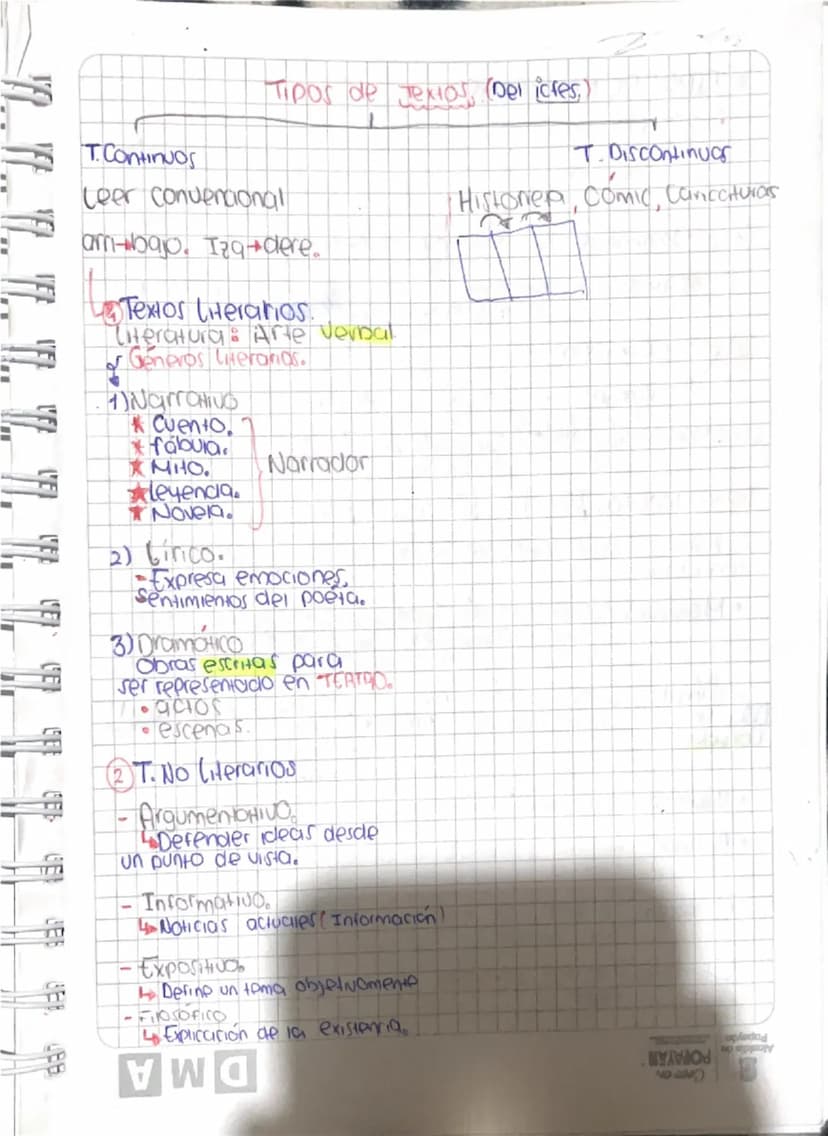 Tipos de Textos. (Del icfes.)
T. Continuos
T. Discontinuos
Leer convencional
Historieta, Cómic, Caricaturas
arri→bajo. Izq→dere.
① Textos Literarios.
Literatura: Arte verbal
Géneros literarios.
1) Narrativo
★ Cuento.
★ fábula.
★ Mito.
Narrador
★ leyenda.
★ Novela.
2) Lírico.
- Expresa emociones,
sentimientos del poeta.
3) Dramático
Obras escritas para
ser representado en TEATRO.
• actos
• escenas.
② T. No Literarios
- Argumentativo.
↳ Defender ideas desde
un punto de vista.
- Informativo.
↳ Noticias actuales (Información)
- Expositivo.
↳ Define un tema objetivamente
- Filosófico
↳ Explicación de la existencia.
DMA
Alcaldía de
Popayán
Creo en
POPAYÁN